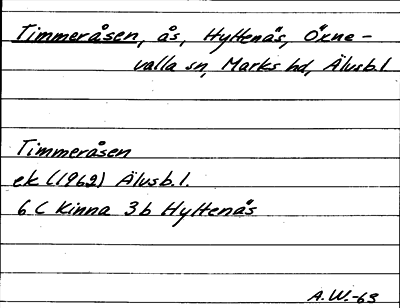 Timmeråsen, ås, Hyltenäs, Öxne-
valla sn, Marks hd, Älvsb.l.
Timmeråsen
ek (1962) Älvsb.l.
6 C Kinna 3b Hyltenäs
A.W.-63